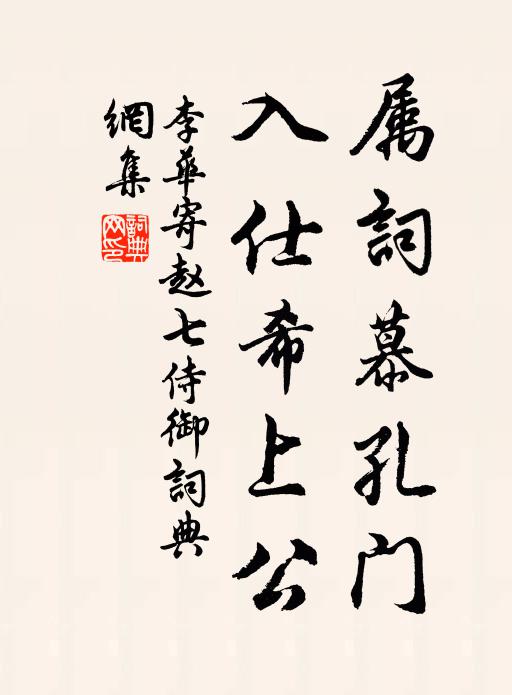 属詞慕孔门
入仕希上公
李華寄赵七侍御詞典
網集
詞典
网印